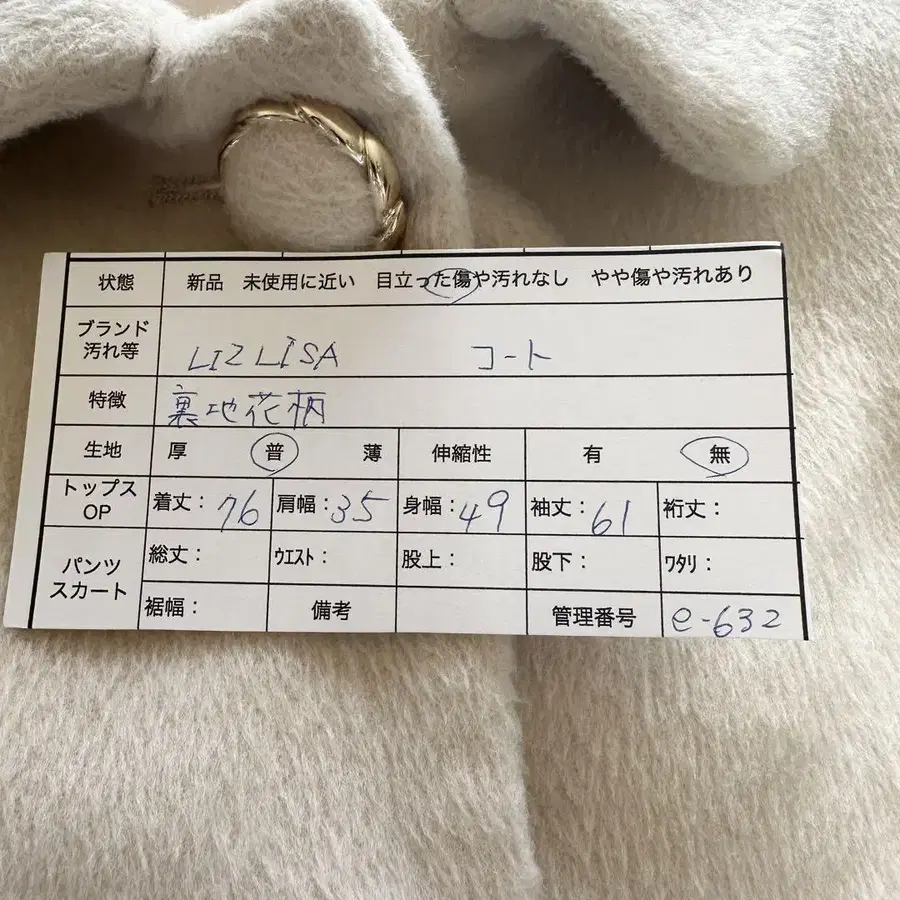 状態 新品 未使用に近い 目立った傷や汚れなし やや傷や汚れあり
ブランド
汚れ等 LIZ LISA コート
特徴 裏地花柄
生地 厚 普 薄 伸縮性 有 無
トップス
OP 着丈：76 肩幅：35 身幅：49 袖丈：61 裄丈：
パンツ
スカート 総丈： ウエスト： 股上： 股下： ワタリ：
裾幅： 備考 管理番号 e-632